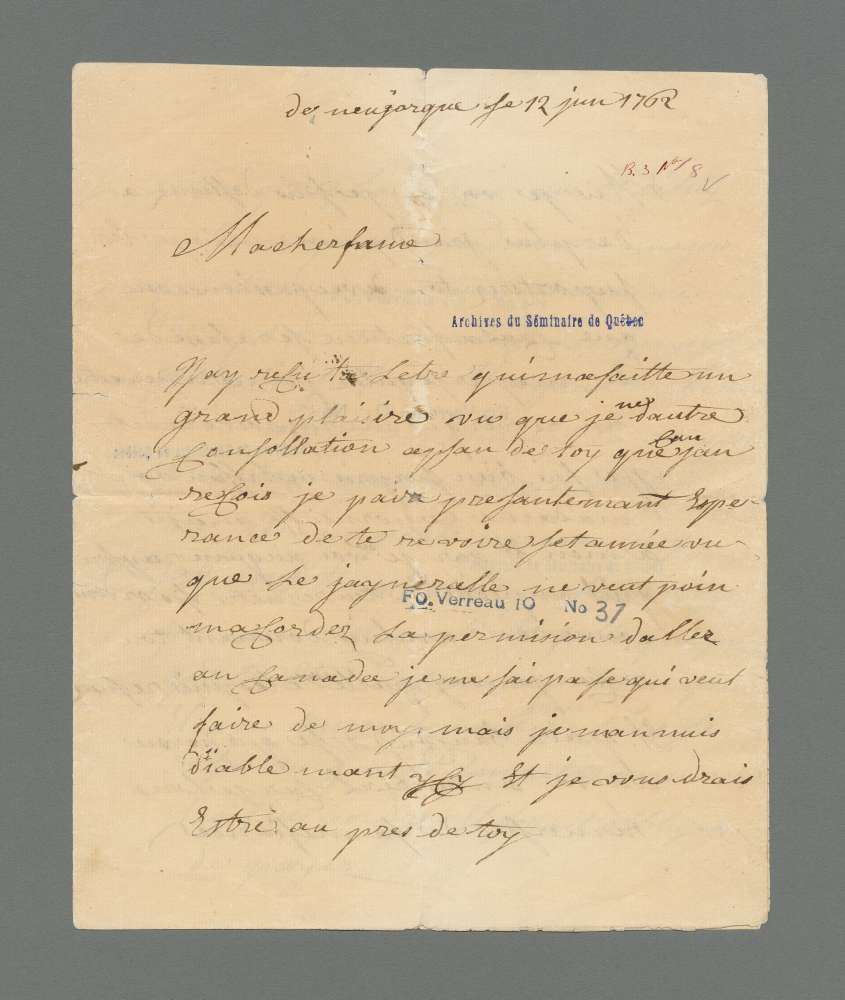 de neuyorque se 12 jun 1762
B. 3 No/ 8
Macherfame
Archives du Séminaire de Québec
Jay resCu ta Letre quimafaitte un
grand plaisire vu que je ney dautre
Consollation apsan de toy que Can jan
resCois je pava presantemant Espe-
rance de te revoire setannée vu
que Le jagneralle ne veut poin
maCorder La permision daller
au Canadae je ne sai pa se qui veut
faire de moy mais je mannuis
diable mant ysy Et je vous drais
Estre au pres de toy
FO. Verreau 10 No 37